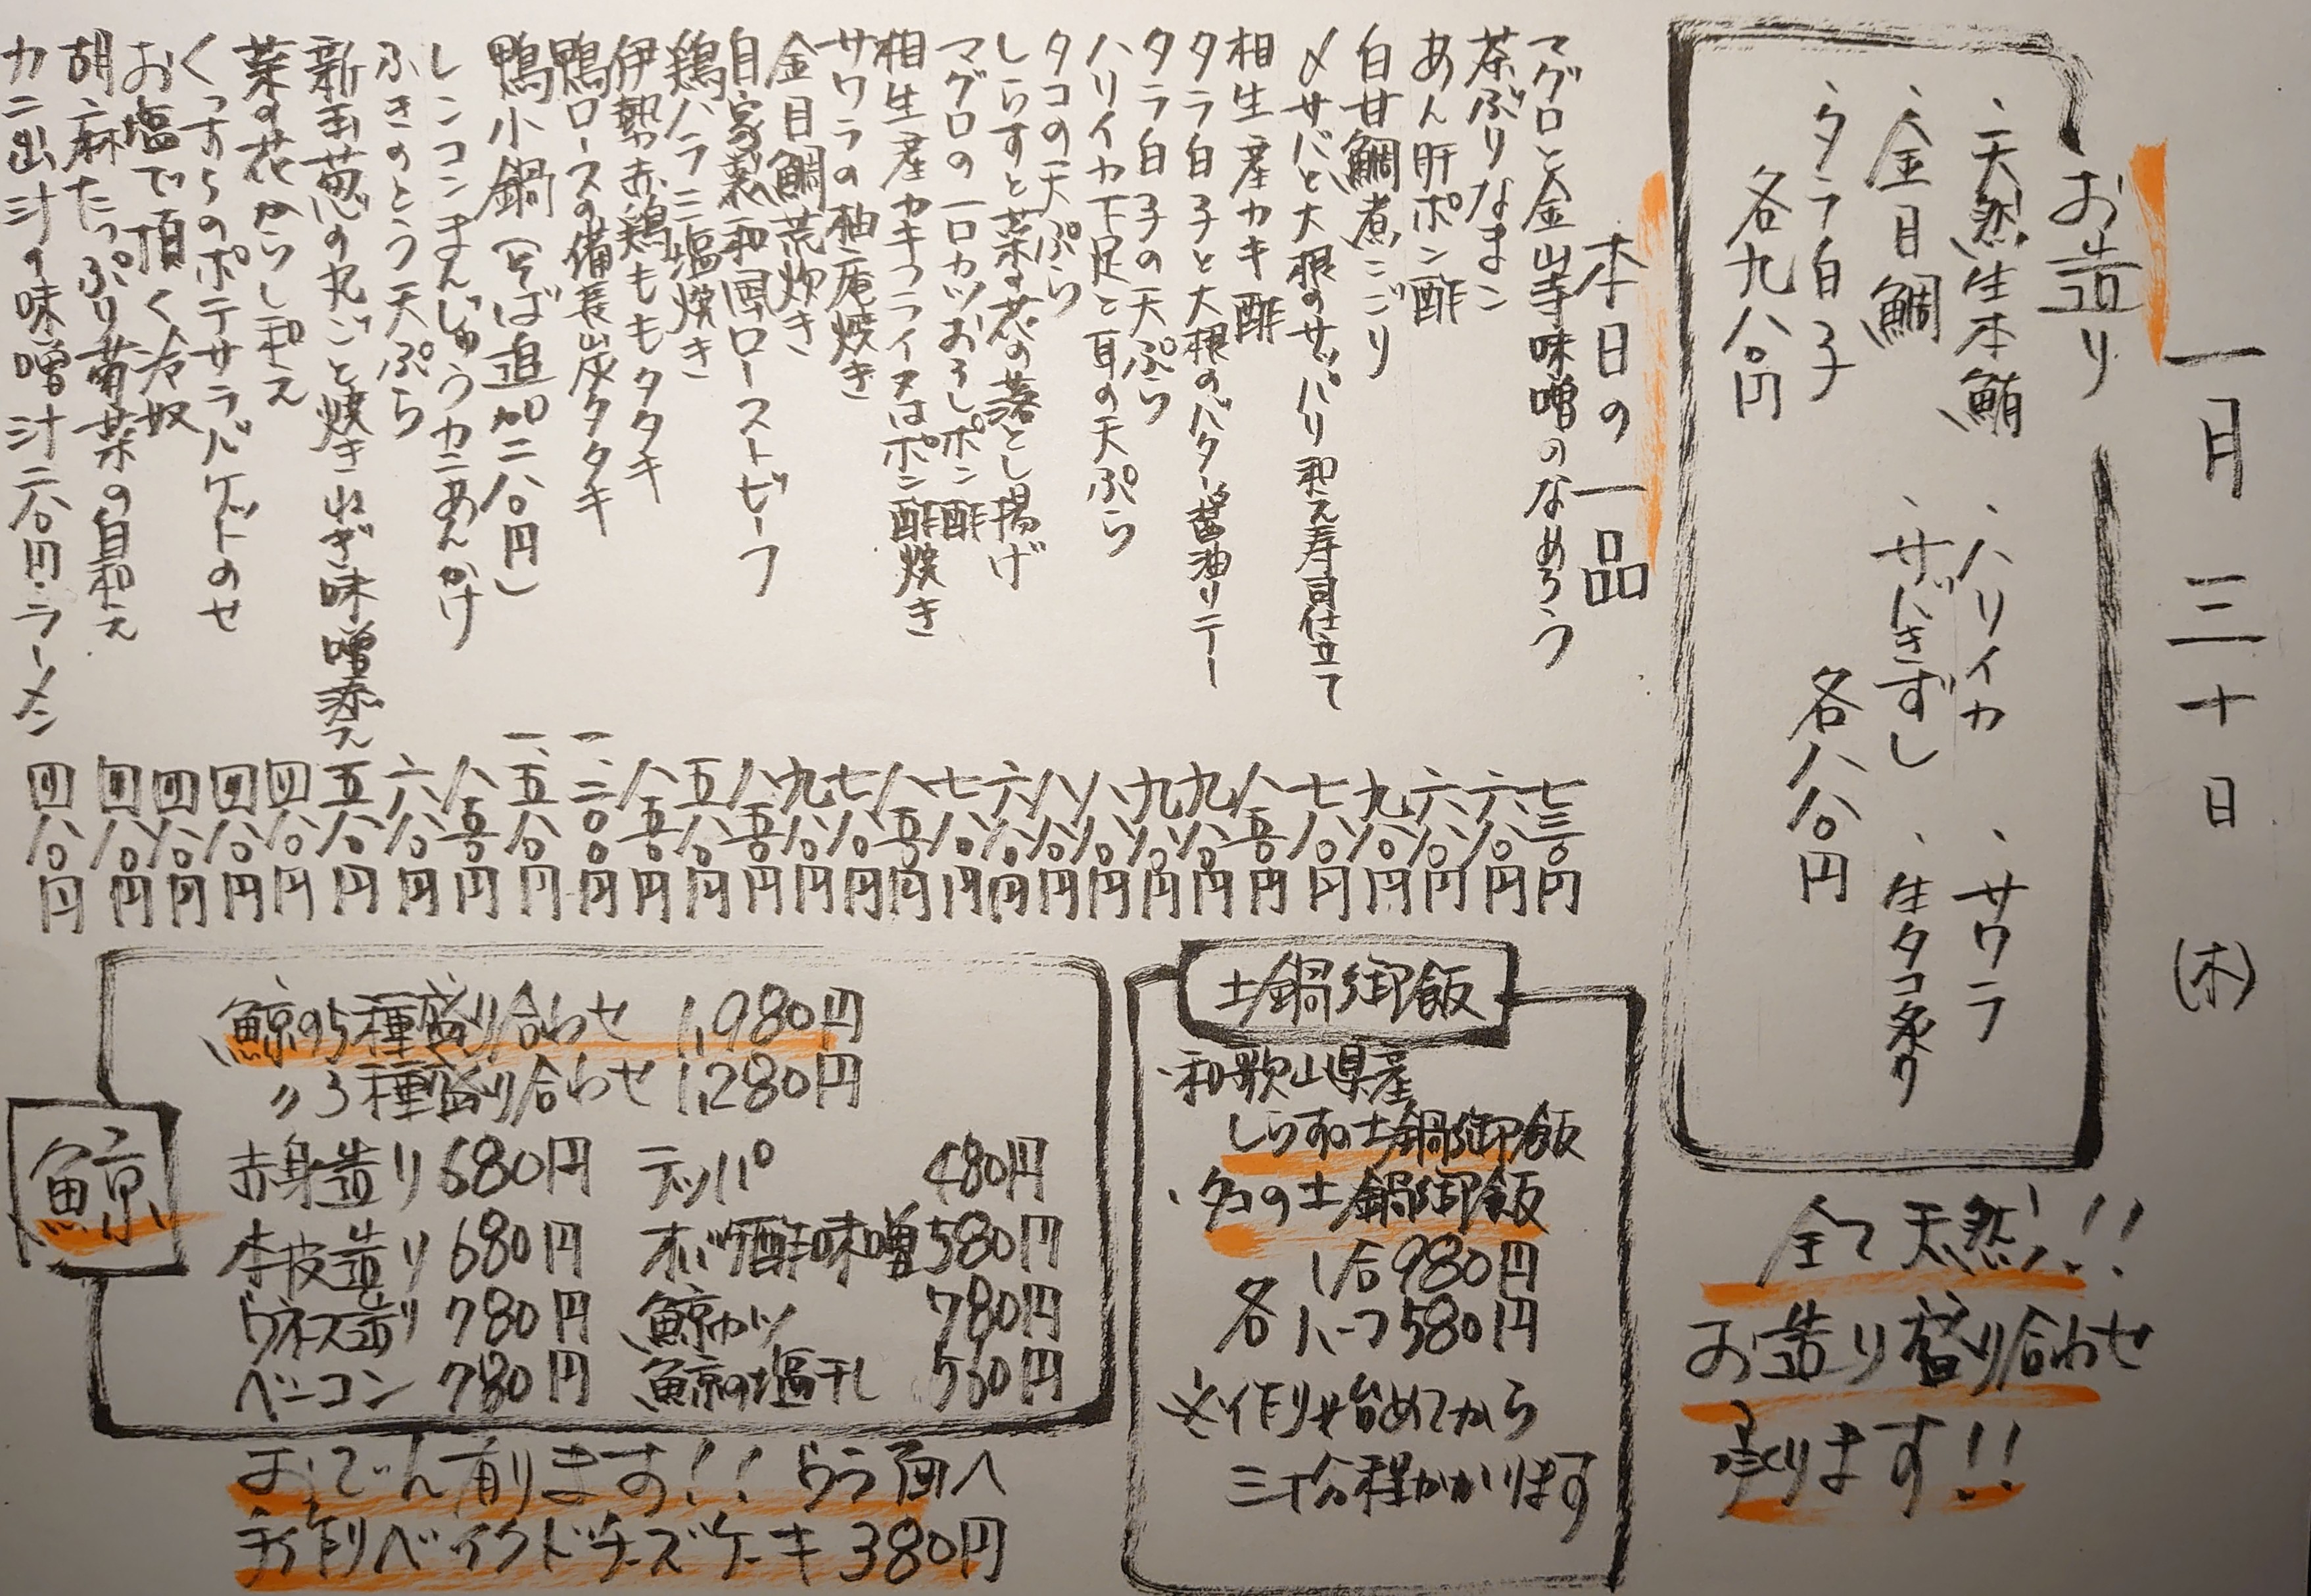 一月三十日(木)
お造り
・天然生本鮪 ・ハリイカ ・サワラ
・金目鯛 ・サバきずし ・生タコ炙り
・タラ白子
各九八〇円 各八八〇円
全て天然!!
お造り盛り合わせ
承ります!!
本日の一品
マグロと金山寺味噌のなめろう 七三〇円
茶ぶりなまこ 六八〇円
あん肝ポン酢 六八〇円
白甘鯛煮こごり 九八〇円
〆サバと大根のサッパリ和え寿司仕立て 七八〇円
相生産カキ酢 八五〇円
タラ白子と大根のバター醤油ソテー 九八〇円
タラ白子の天ぷら 九八〇円
ハリイカ下足と耳の天ぷら 八八〇円
タコの天ぷら 八八〇円
しらすと菜の花の落とし揚げ 六八〇円
マグロの一口カツおろしポン酢 七八〇円
相生産カキフライ又はポン酢焼き 八五〇円
サワラの柚庵焼き 七八〇円
金目鯛荒炊き 九八〇円
自家製和風ローストビーフ 八五〇円
鶏ハラミ塩焼き 五八〇円
伊勢赤鶏ももタタキ 八五〇円
鴨ロースの備長炭タタキ 一、二〇〇円
鴨小鍋(そば追加二八〇円) 一、五八〇円
レンコンまんじゅうカニあんかけ 八五〇円
ふきのとう天ぷら 六八〇円
新玉葱の丸ごと焼きねぎ味噌添え 五八〇円
菜の花からし和え 四八〇円
くつすらのポテサラバゲットのせ 四八〇円
お塩で頂く冷奴 四八〇円
胡麻たっぷり菊菜の白和え 四八〇円
カニ出汁の味噌汁二八〇円・ラーメン 四八〇円
土鍋御飯
・和歌山県産
しらすの土鍋御飯
・タコの土鍋御飯
各 1合980円
ハーフ580円
※作り始めてから
三十分程かかります
鯨
鯨の5種盛り合わせ 1,980円
〃3種盛り合わせ 1,280円
赤身造り 680円 テッパ 480円
本皮造り 680円 オバケ酢味噌 580円
ウネス造り 780円 鯨カツ 780円
ベーコン 780円 鯨の塩干し 560円
おでん有ります!! ウラ面へ
手作りベイクドチーズケーキ 380円